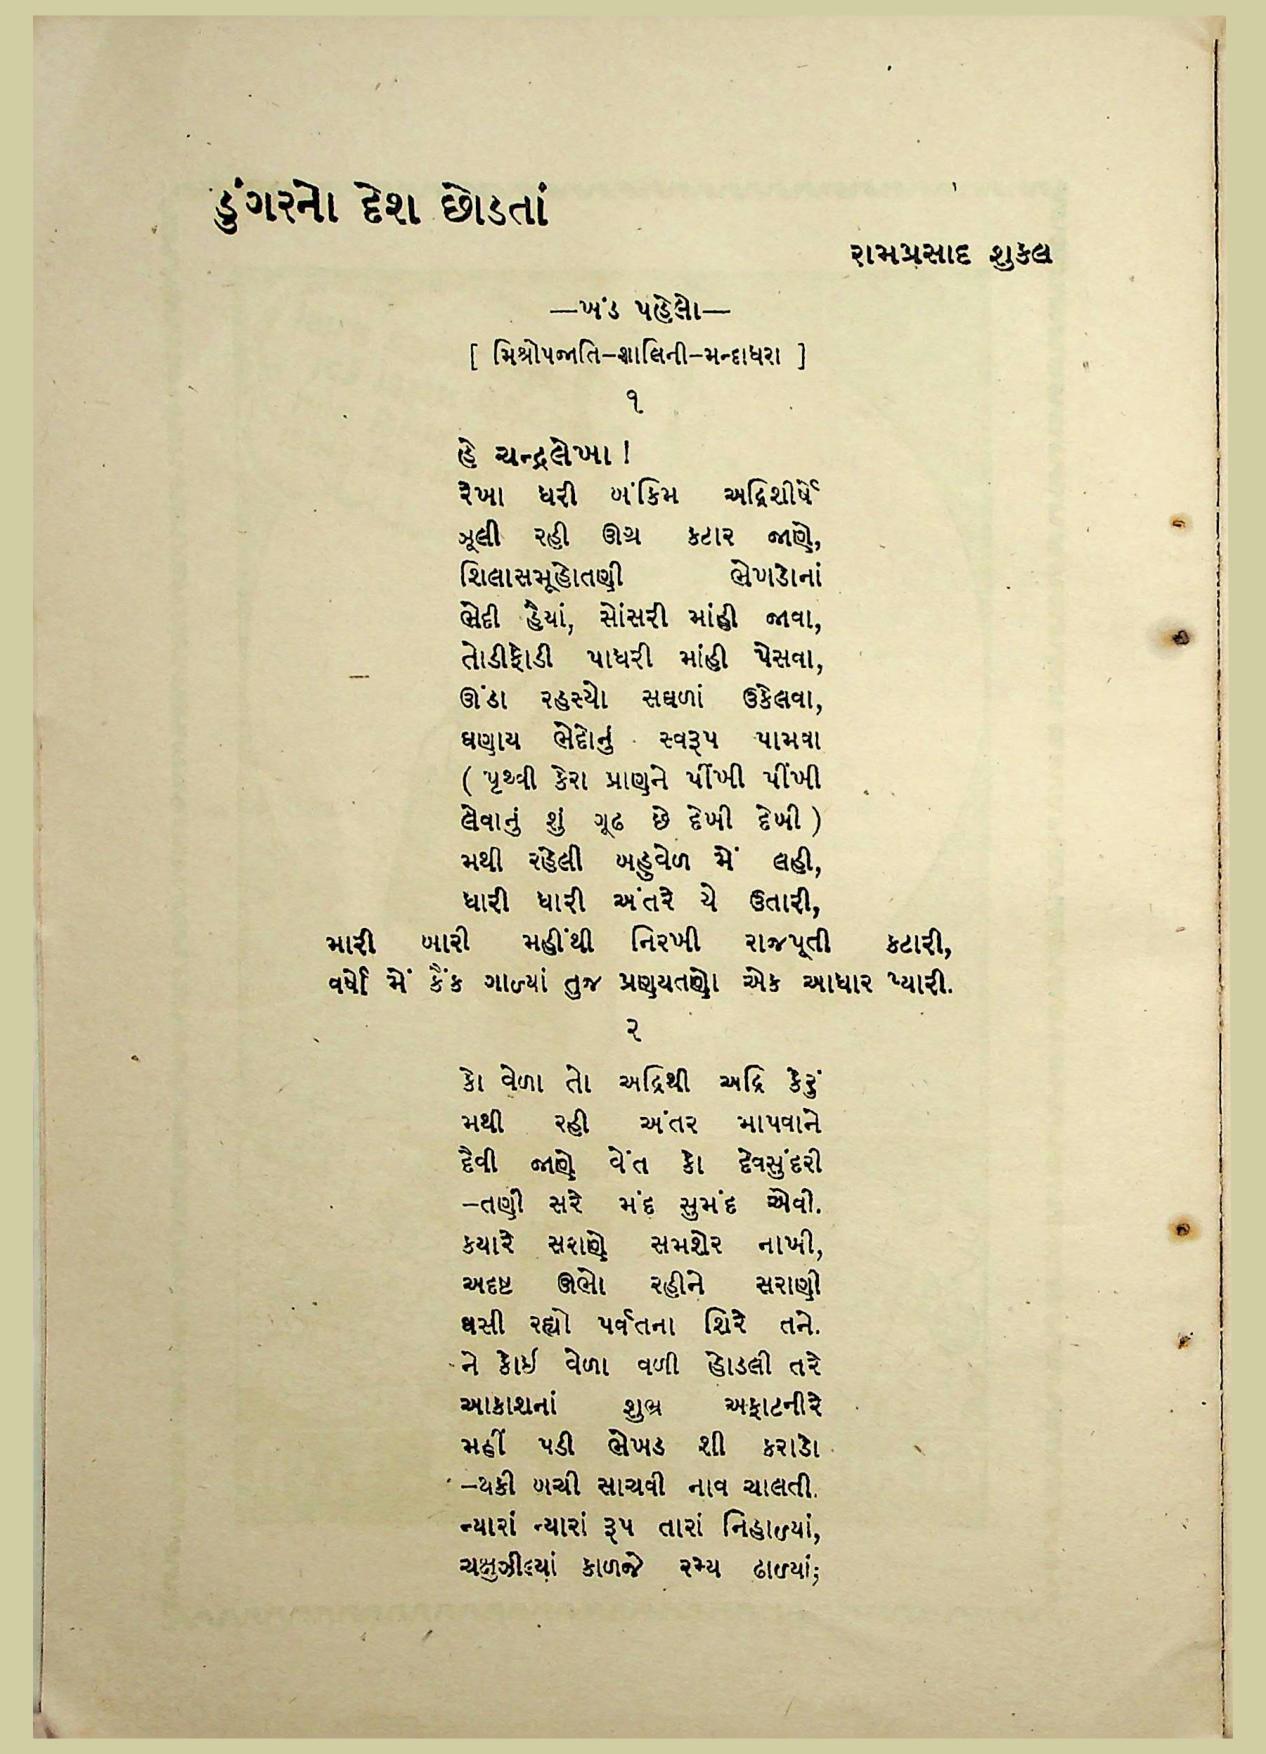 ડુંગરનો દેશ છોડતાં
રામપ્રસાદ શુકલ
—ખંડ પહેલો—
[ મિશ્રોપજાતિ–શાલિની–મન્દાધરા ]
૧
હે ચન્દ્રલેખા !
રેખા ધરી બંકિમ અદ્રિશીર્ષે
ઝૂલી રહી ઊગ્ર કટાર જાણે,
શિલાસમૂહોતણી ભેખડોનાં
ભેદી હૈયાં, સોંસરી માંહી જાવા,
તોડીફોડી પાધરી માંહી પેસવા,
ઊંડા રહસ્યો સઘળાં ઉકેલવા,
ઘણાય ભેદોનું સ્વરૂપ પામવા
( પૃથ્વી કેરા પ્રાણને પીંખી પીંખી
લેવાનું શું ગૂઢ છે દેખી દેખી )
મથી રહેલી બહુવેળ મેં લહી,
ધારી ધારી અંતરે યે ઉતારી,
મારી બારી મહીંથી નિરખી રાજપૂતી કટારી,
વર્ષો મેં કૈંક ગાળ્યાં તુજ પ્રણયતણો એક આધાર પ્યારી.
૨
કો વેળા તો અદ્રિથી અદ્રિ કેરું
મથી રહી અંતર માપવાને
દૈવી જાણે વેંત કો દેવસુંદરી
–તણી સરે મંદ સુમંદ એવી.
કયારે સરાણે સમશેર નાખી,
અદૃષ્ટ ઊભો રહીને સરાણી
ઘસી રહ્યો પર્વતના શિરે તને.
ને કોઈ વેળા વળી હોડલી તરે
આકાશનાં શુભ્ર અફાટનીરે
મહીં પડી ભેખડ શી કરાડો
–થકી બચી સાચવી નાવ ચાલતી.
ન્યારાં ન્યારાં રૂપ તારાં નિહાળ્યાં,
ચક્ષુઝીલ્યાં કાળજે રમ્ય ઢાળ્યાં;